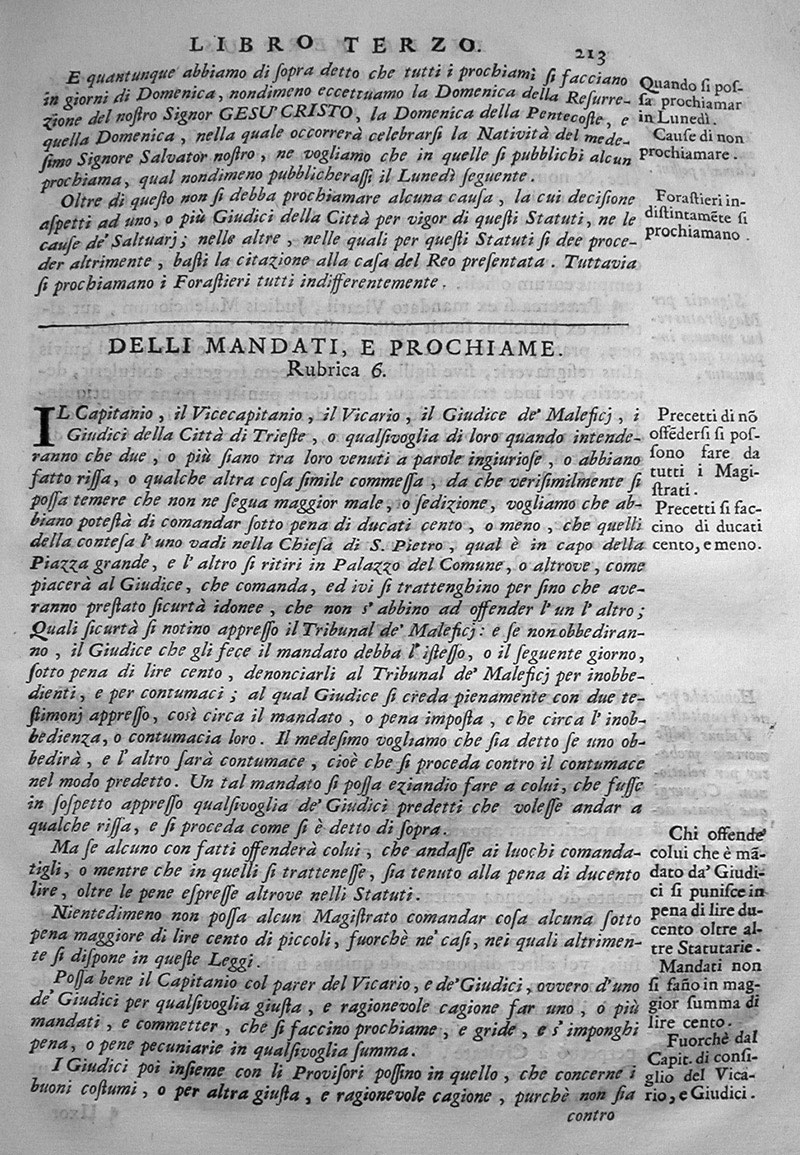 LIBRO TERZO.
213
E quantunque abbiamo di ſopra detto che tutti i prochiami ſi facciano
in giorni di Domenica, nondimeno eccettuamo la Domenica della Reſurre-
zione del noſtro Signor GESU' CRISTO, la Domenica della Pentecoſte, e
quella Domenica, nella quale occorrerà celebrarſi la Natività del mede-
ſimo Signore Salvator noſtro, ne vogliamo che in quelle ſi pubblichi alcun
prochiama, qual nondimeno pubblicheraſſi il Lunedì ſeguente.
Oltre di queſto non ſi debba prochiamare alcuna cauſa, la cui deciſione
aſpetti ad uno, o più Giudici della Città per vigor di queſti Statuti, ne le
cauſe de' Saltuarj; nelle altre, nelle quali per queſti Statuti ſi dee proce-
der altrimente, baſti la citazione alla caſa del Reo preſentata. Tuttavia
ſi prochiamano i Foraſtieri tutti indifferentemente.
Quando ſi poſ-
ſa prochiamar
in Lunedì.
Cauſe di non
prochiamare.
Foraſtieri in-
diſtintamẽte ſi
prochiamano.
DELLI MANDATI, E PROCHIAME.
Rubrica 6.
IL Capitanio, il Vicecapitanio, il Vicario, il Giudice de' Malefici, i
Giudici della Città di Trieſte, o qualſivoglia di loro quando intende-
ranno che due, o più ſiano tra loro venuti a parole ingiurioſe, o abbiano
fatto riſſa, o qualche altra coſa ſimile commeſſa, da che veriſimilmente ſi
poſſa temere che non ne ſegua maggior male, o ſedizione, vogliamo che ab-
biano poteſtà di comandar ſotto pena di ducati cento, o meno, che quelli
della conteſa l'uno vadi nella Chieſa di S. Pietro, qual è in capo della
Piazza grande, e l'altro ſi ritiri in Palazzo del Comune, o altrove, come
piacerà al Giudice, che comanda, ed ivi ſi trattenghino per fino che ave-
ranno preſtato ſicurtà idonee, che non s'abbino ad offender l'un l'altro;
Quali ſicurtà ſi notino appreſſo il Tribunal de' Maleficj: e ſe non obbediran-
no, il Giudice che gli fece il mandato debba l'iſteſſo, o il ſeguente giorno,
ſotto pena di lire cento, denonciarli al Tribunal de' Maleficj per inobbe-
dienti, e per contumaci; al qual Giudice ſi creda pienamente con due te-
ſtimonj appreſſo, così circa il mandato, o pena impoſta, che circa l'inob-
bedienza, o contumacia loro. Il medeſimo vogliamo che ſia detto ſe uno ob-
bedirà, e l'altro ſarà contumace, cioè che ſi proceda contro il contumace
nel modo predetto. Un tal mandato ſi poſſa eziandio fare a colui, che fuſſe
in ſoſpetto appreſſo qualſivoglia de' Giudici predetti che voleſſe andar a
qualche riſſa, e ſi proceda come ſi è detto di ſopra.
Ma ſe alcuno con fatti offenderà colui, che andaſſe ai luochi comanda-
tigli, o mentre che in quelli ſi tratteneſſe, ſia tenuto alla pena di ducento
lire, oltre le pene eſpreſſe altrove nelli Statuti.
Nientedimeno non poſſa alcun Magiſtrato comandar coſa alcuna ſotto
pena maggiore di lire cento di piccoli, fuorchè ne' caſi, nei quali altrimen-
te ſi diſpone in queſte Leggi.
Poſſa bene il Capitanio col parer del Vicario, e de' Giudici, ovvero d'uno
de' Giudici per qualſivoglia giuſta, e ragionevole cagione far uno, o più
mandati, e commetter, che ſi faccino prochiame, e gride, e s'imponghi
pena, o pene pecuniarie in qualſivoglia ſumma.
I Giudici poi inſieme con li Proviſori poſſino in quello, che concerne i
buoni coſtumi, o per altra giuſta, e ragionevole cagione, purchè non ſia
contro
Precetti di nõ
offẽderſi ſi poſ-
ſono fare da
tutti i Magi-
ſtrati.
Precetti ſi fac-
cino di ducati
cento, e meno.
Chi offende'
colui che è mã-
dato da' Giudi-
ci ſi puniſce in
pena di lire du-
cento oltre al-
tre Statutarie.
Mandati non
ſi fañо in mag-
gior ſumma di
lire cento.
Fuorchè dal
Capit. di conſi-
glio del Vica-
rio, e Giudici.